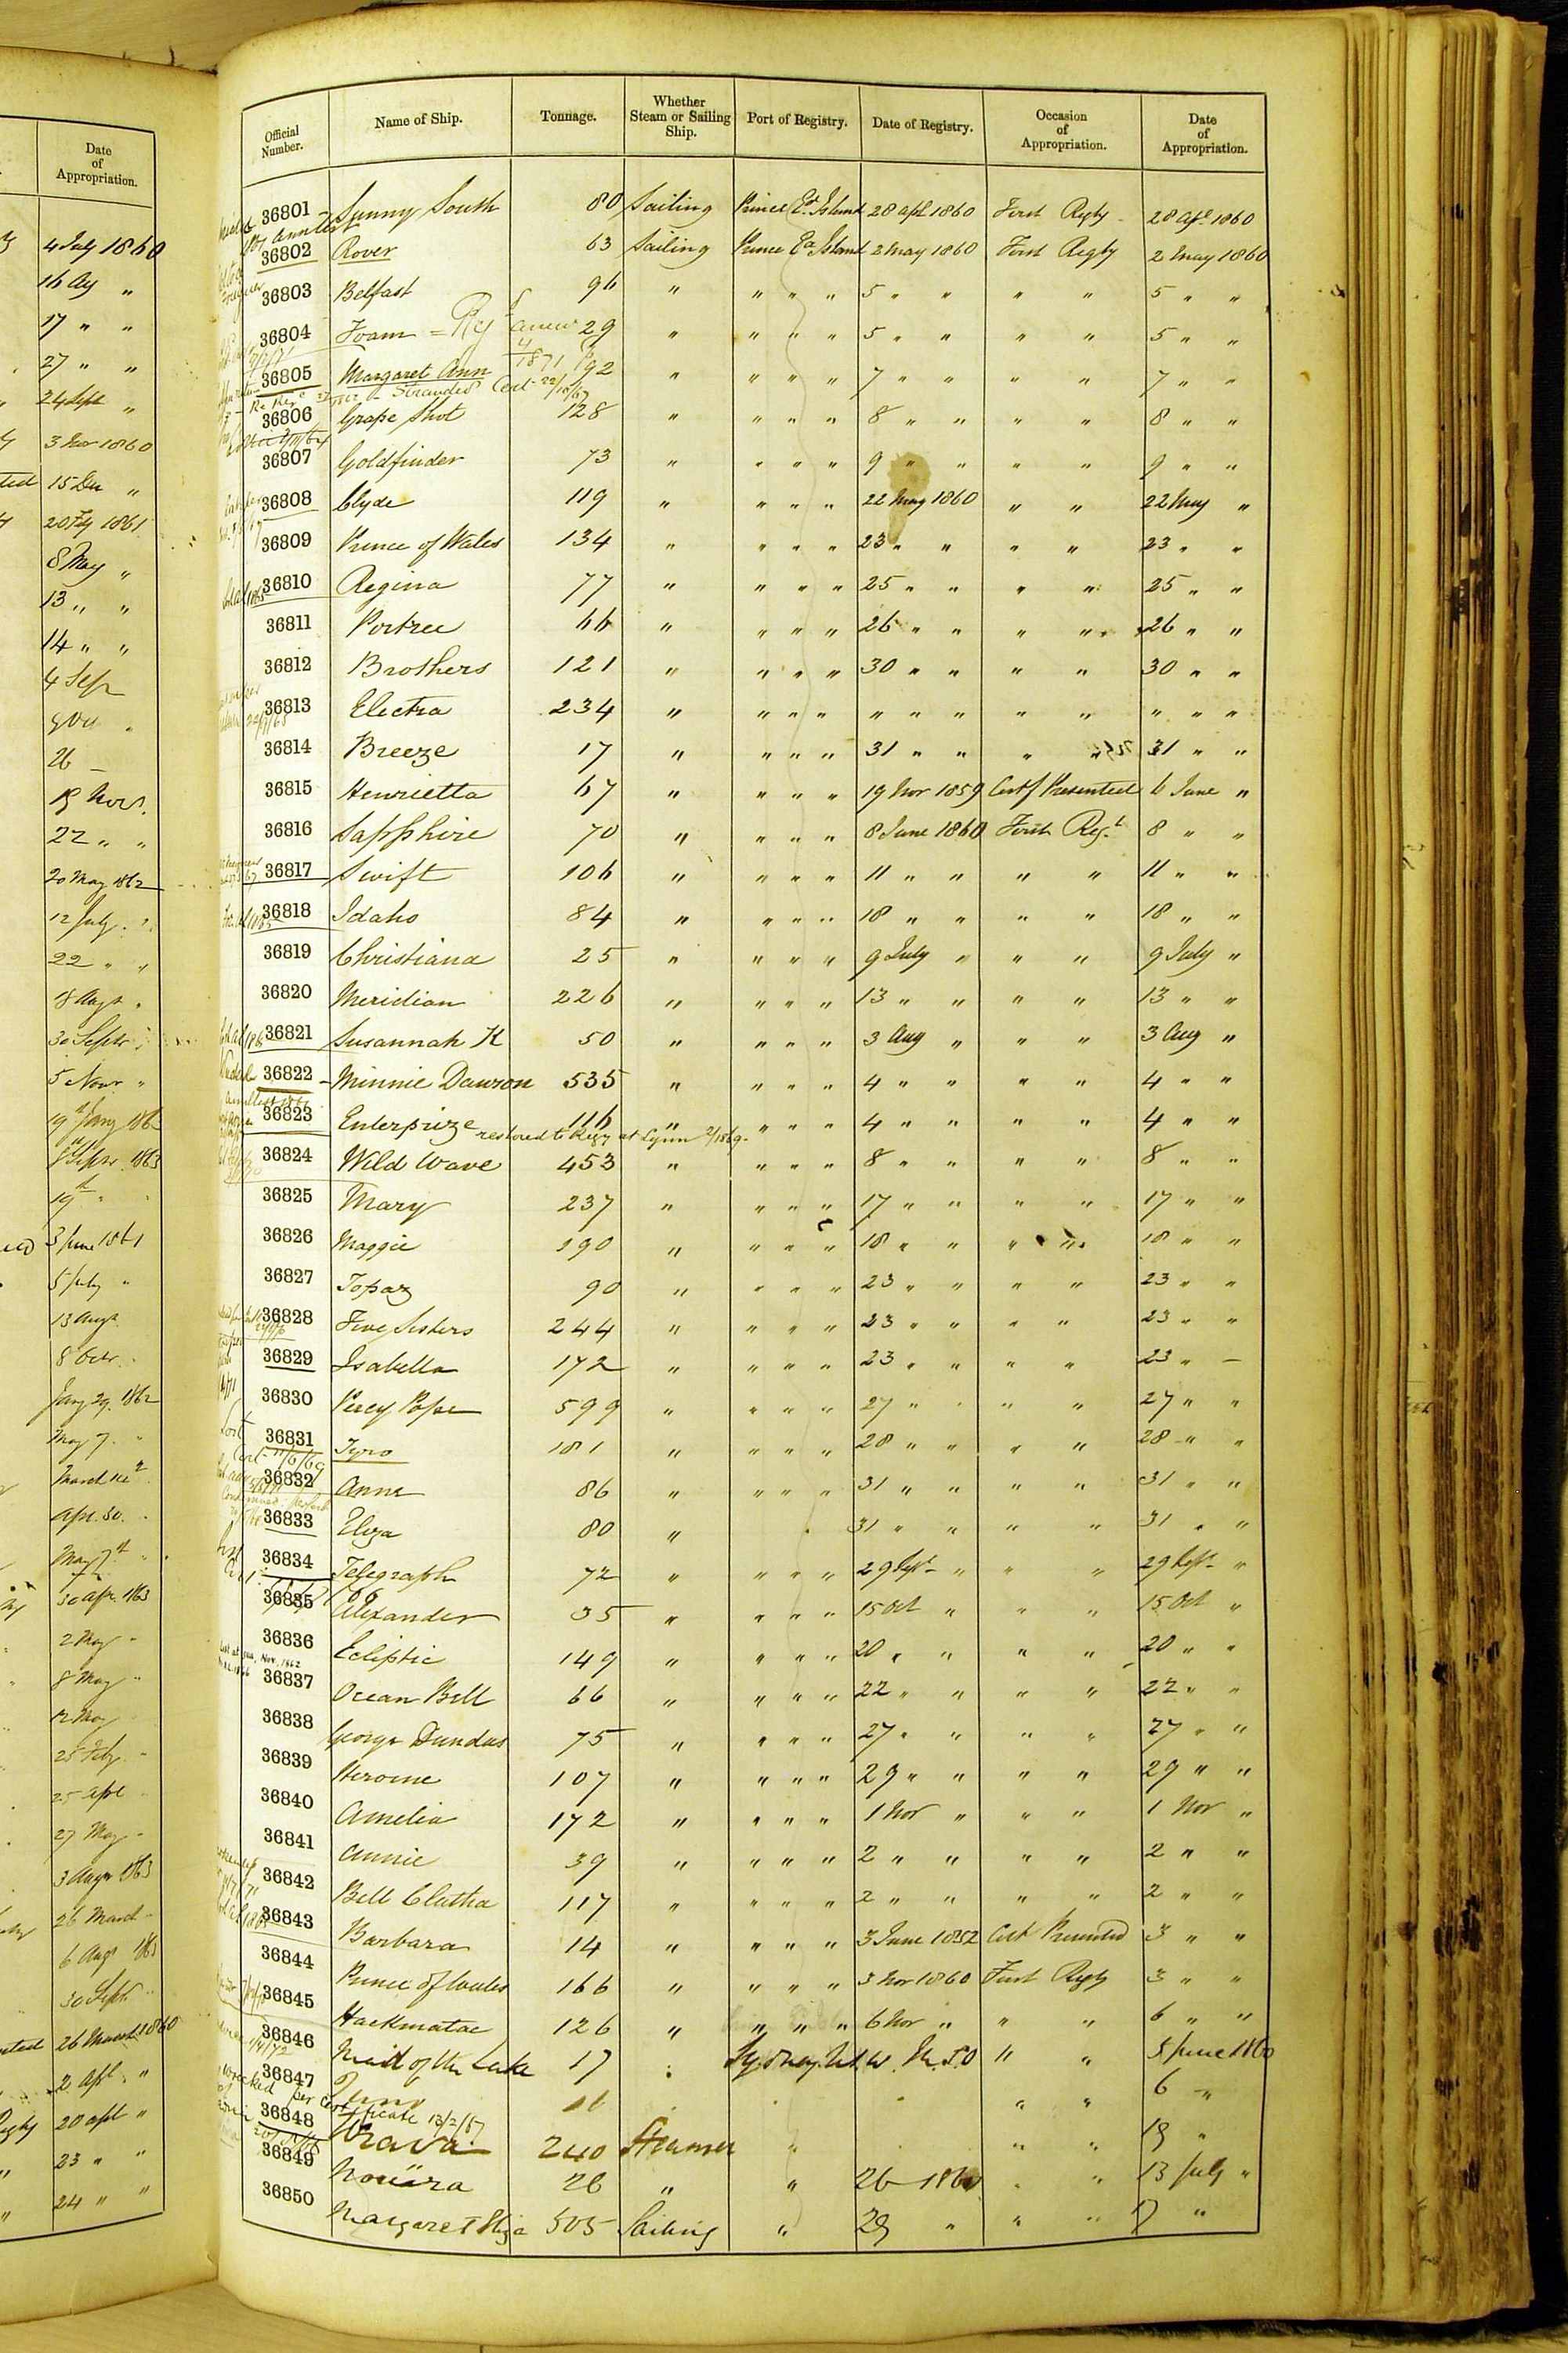 Date of Appropriation.
4 July 1860
16 Ag "
17 " "
27 " "
24 Sept "
3 Nov 1860
15 Dec "
20 Feby 1861
8 May "
13 " "
14 " "
4 Sep
26 —
19 Novr.
22 " "
20 May 1862
12 July "
22 " "
18 Augt "
30 Septr "
5 Novr "
19th Jany 1863
8 Septr 1863
19th " "
3 June 1861
5 July "
13 Augt
8 Octr "
Jany 29. 1862
May 7. "
March 14th
Apr. 30. "
May 7th "
30 Apr. 1863
2 May "
8 May "
12 May
25 Feby "
25 Apl "
27 May "
3 Augt 1863
26 March "
6 Augt 1863
30 Septr "
26 March 1860
2 Apl "
20 apl "
23 " "
24 " "
Official Number. Name of Ship. Tonnage. Whether Steam or Sailing Ship. Port of Registry. Date of Registry. Occasion of Appropriation. Date of Appropriation.
36801 - Sunny South 80 Sailing Prince Ed Island 28 Apl 1860 First Regty 28 Apl 1860
36802 Rover 63 Sailing Prince Ed Island 2 May 1860 First Regty 2 May 1860
36803 Belfast 96 " " " " 5 " " " " 5 " "
36804 Foam = Regd anew 29 " " " " 5 " " " " 5 " "
4/1871
36805 Margaret Ann 92 " " " " 7 " " " " 7 " "
Stranded Cert 22/10/67
36806 Grape Shot 128 " " " " 8 " " " " 8 " "
36807 Goldfinder 73 " " " " 9 " " " " 9 " "
36808 Clyde 119 " " " " 22 May 1860 " " 22 May "
36809 Prince of Wales 134 " " " " 23 " " " " 23 " "
36810 Regina 77 " " " " 25 " " " " 25 " "
36811 Portree 66 " " " " 26 " " " " 26 " "
36812 Brothers 121 " " " " 30 " " " " 30 " "
36813 Electra 234 " " " " " " " " " " " "
36814 Breeze 17 " " " " 31 " " " " 31 " "
36815 Henrietta 67 " " " " 19 Nov 1859 Certf Presented 6 June "
36816 Sapphire 70 " " " " 8 June 1860 First Reg.t 8 " "
36817 Swift 106 " " " " 11 " " " " 11 " "
36818 Idaho 84 " " " " 18 " " " " 18 " "
36819 Christiana 25 " " " " 9 July " " " 9 July "
36820 Meridian 226 " " " " 13 " " " " 13 " "
36821 Susannah K 50 " " " " 3 Aug " " " 3 Aug "
36822 - Minnie Dawson 535 " " " " 4 " " " " 4 " "
36823 Enterprize 116 " " " " 4 " " " " 4 " "
restored to Regy at Lynn 2/1869.
36824 Wild Wave 453 " " " " 8 " " " " 8 " "
36825 Mary 237 " " " " 17 " " " " 17 " "
36826 Maggie 190 " " " " 18 " " " " 18 " "
36827 Topaz 90 " " " " 23 " " " " 23 " "
36828 Five Sisters 244 " " " " 23 " " " " 23 " "
36829 Isabella 172 " " " " 23 " " " " 23 " —
36830 Percy Pope 599 " " " " 27 " " " " 27 " "
Lost
36831 Tyro 181 " " " " 28 " " " " 28 " "
Cert 11/6/69
36832 Anne 86 " " " " 31 " " " " 31 " "
36833 Eliza 80 " 31 " " " " 31 " "
36834 Telegraph 72 " " " " 29 Sept " " " 29 Sept "
36835 Alexander 35 " " " " 15 Oct " " " 15 Oct "
36836 Ecliptic 149 " " " " 20 " " " " 20 " "
Lost at sea, Nov. 1862
36837 Ocean Bell 66 " " " " 22 " " " " 22 " "
36838 George Dundas 75 " " " " 27 " " " " 27 " "
36839 Heroine 107 " " " " 29 " " " " 29 " "
36840 Amelia 172 " " " " 1 Nov " " " 1 Nov "
36841 Annie 39 " " " " 2 " " " " 2 " "
36842 Bell Clutha 117 " " " " 2 " " " " 2 " "
36843 Barbara 14 " " " " 3 June 1852 Cert Presented 3 " "
36844 Prince of Wales 166 " " " " 3 Nov 1860 First Regty 3 " "
36845 Hackmatac 126 " " " " 6 Nov " " " 6 " "
36846 Maid of the Lake 17 Sydney. N.S.W. " " 5 June 1860
36847 " " 6 "
wrecked per Certificate 13/2/67
36848 240 Steamer " " " 19 "
36849 26 " " 26 - 1860 " 13 July "
36850 Margaret Eliza 505 Sailing " 29 " " " "